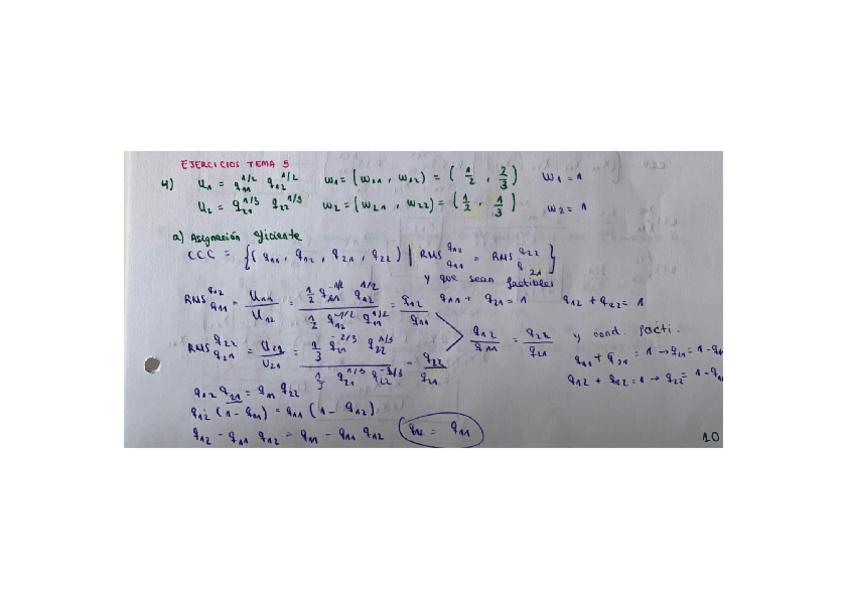 EJERCICIOS TEMA 5
4) U₁ = q₁₁^1/2 q₁₂^1/2 w₁ = (w₁₁, w₁₂) = (1/2, 2/3) W₁ = 1
U₂ = q₂₁^1/3 q₂₂^1/3 w₂ = (w₂₁, w₂₂) = (1/2, 1/3) W₂ = 1
a) Asignación eficiente
CCC = {(q₁₁, q₁₂, q₂₁, q₂₂) | RMS q₁₂ q₁₁ = RMS q₂₂ q₂₁}
y que sean factibles
RMS q₁₂ q₁₁ = U₁₁/U₁₂ = (1/2 q₁₁^-1/2 q₁₂^1/2)/(1/2 q₁₂^-1/2 q₁₁^1/2) = q₁₂/q₁₁ q₁₁ + q₂₁ = 1 q₁₂ + q₂₂ = 1
RMS q₂₂ q₂₁ = U₂₁/U₂₂ = (1/3 q₂₁^-2/3 q₂₂^1/3)/(1/3 q₂₁^1/3 q₂₂^-2/3) = q₂₂/q₂₁ q₁₂/q₁₁ = q₂₂/q₂₁ y cond. facti.
q₁₁ + q₂₁ = 1 → q₂₁ = 1 - q₁₁
q₁₂ + q₂₂ = 1 → q₂₂ = 1 - q₁₂
q₁₂ q₂₁ = q₁₁ q₂₂
q₁₂ (1 - q₁₁) = q₁₁ (1 - q₁₂)
q₁₂ - q₁₁ q₁₂ = q₁₁ - q₁₁ q₁₂ q₁₂ = q₁₁
10